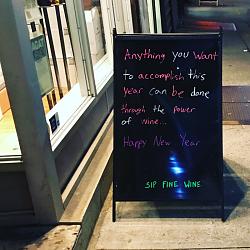 Anything you want
to accomplish this
year can be done
through the power
of wine...
Happy New Year
SIP FINE WINE